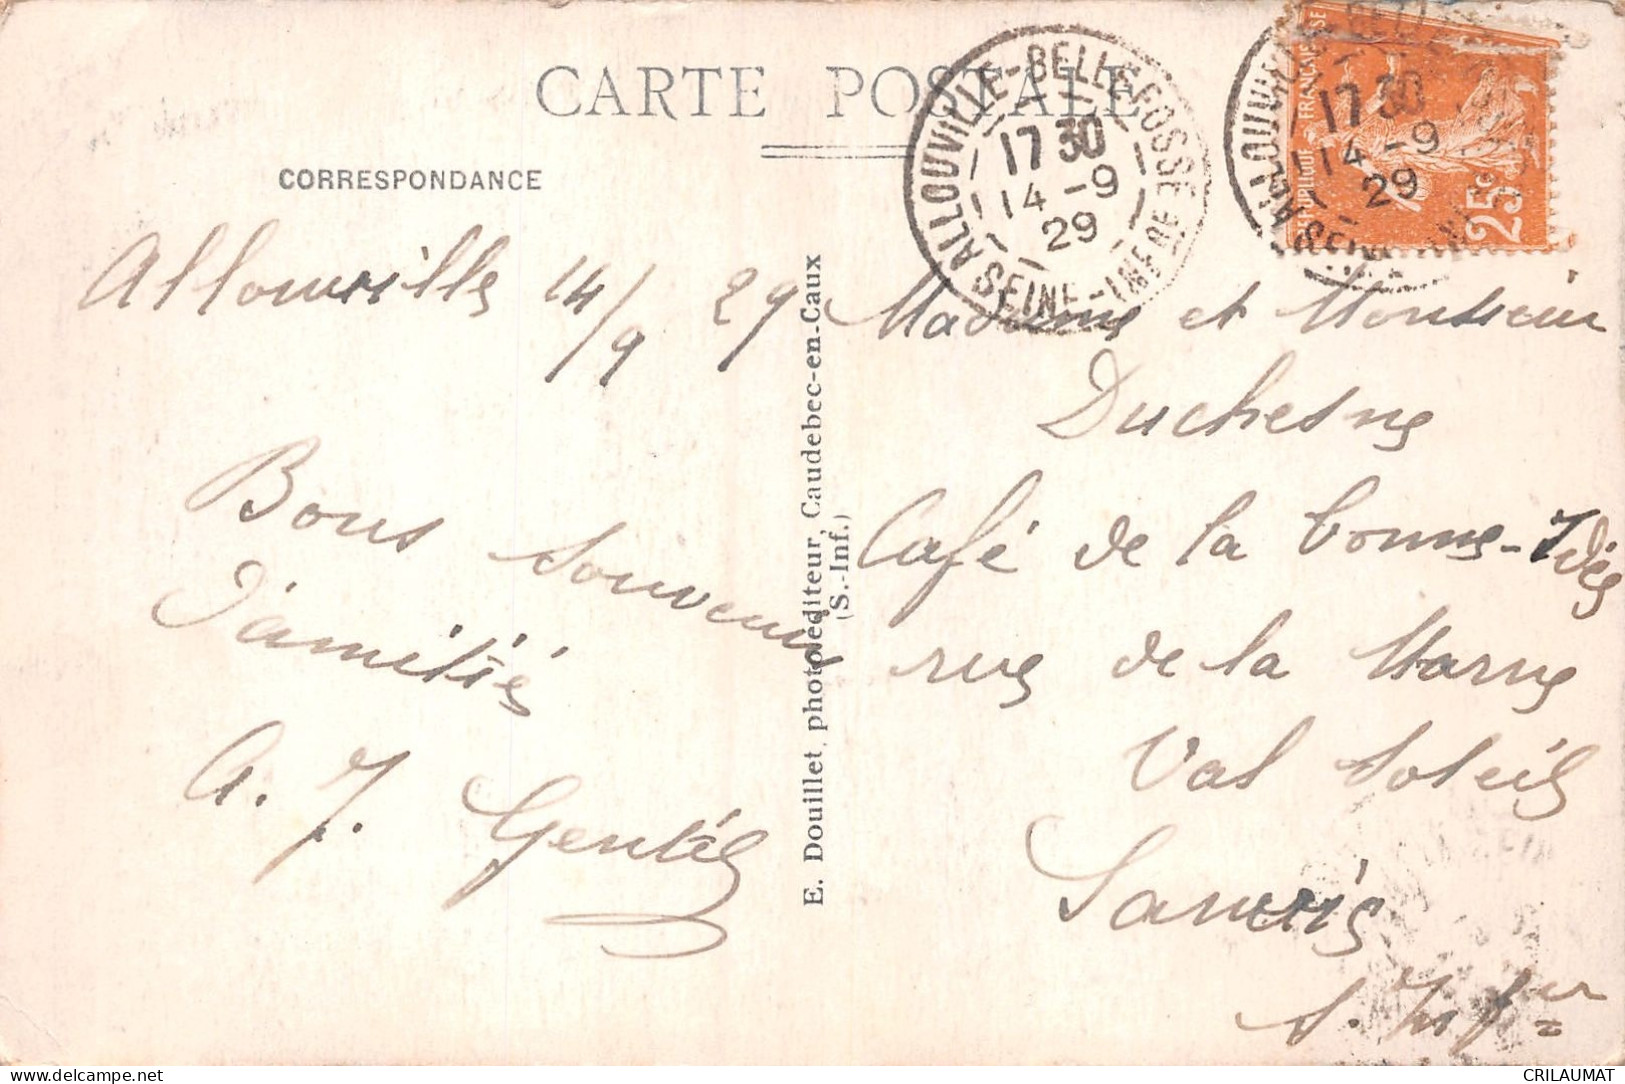 CARTE POSTALE
CORRESPONDANCE
ALLOUVILLE-BELLEFOSSE
SEINE-INFRE
17 30
14-9
29
ALLOUVILLE
SEINE-INF
17 30
14-9
29
REPUBLIQUE FRANÇAISE
25c
Allouville 14/9 29
Bons souvenirs
d'amitiés
A. J. Gentil
E. Douillet, photo-éditeur, Caudebec-en-Caux
(S.-Inf.)
Madame et Monsieur
Duchesne
Café de la bonne-Idée
rue de la Marne
Val Soleil
Sanvic
S. Infre
CRILAUMAT